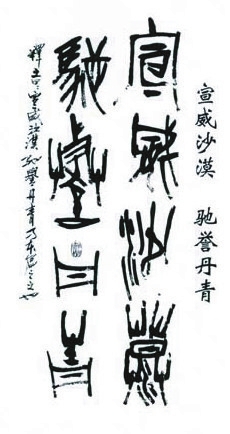 宣威沙漠 驰誉丹青
宣威沙漠
驰誉丹青
釋文宣威沙漠驰譽丹青